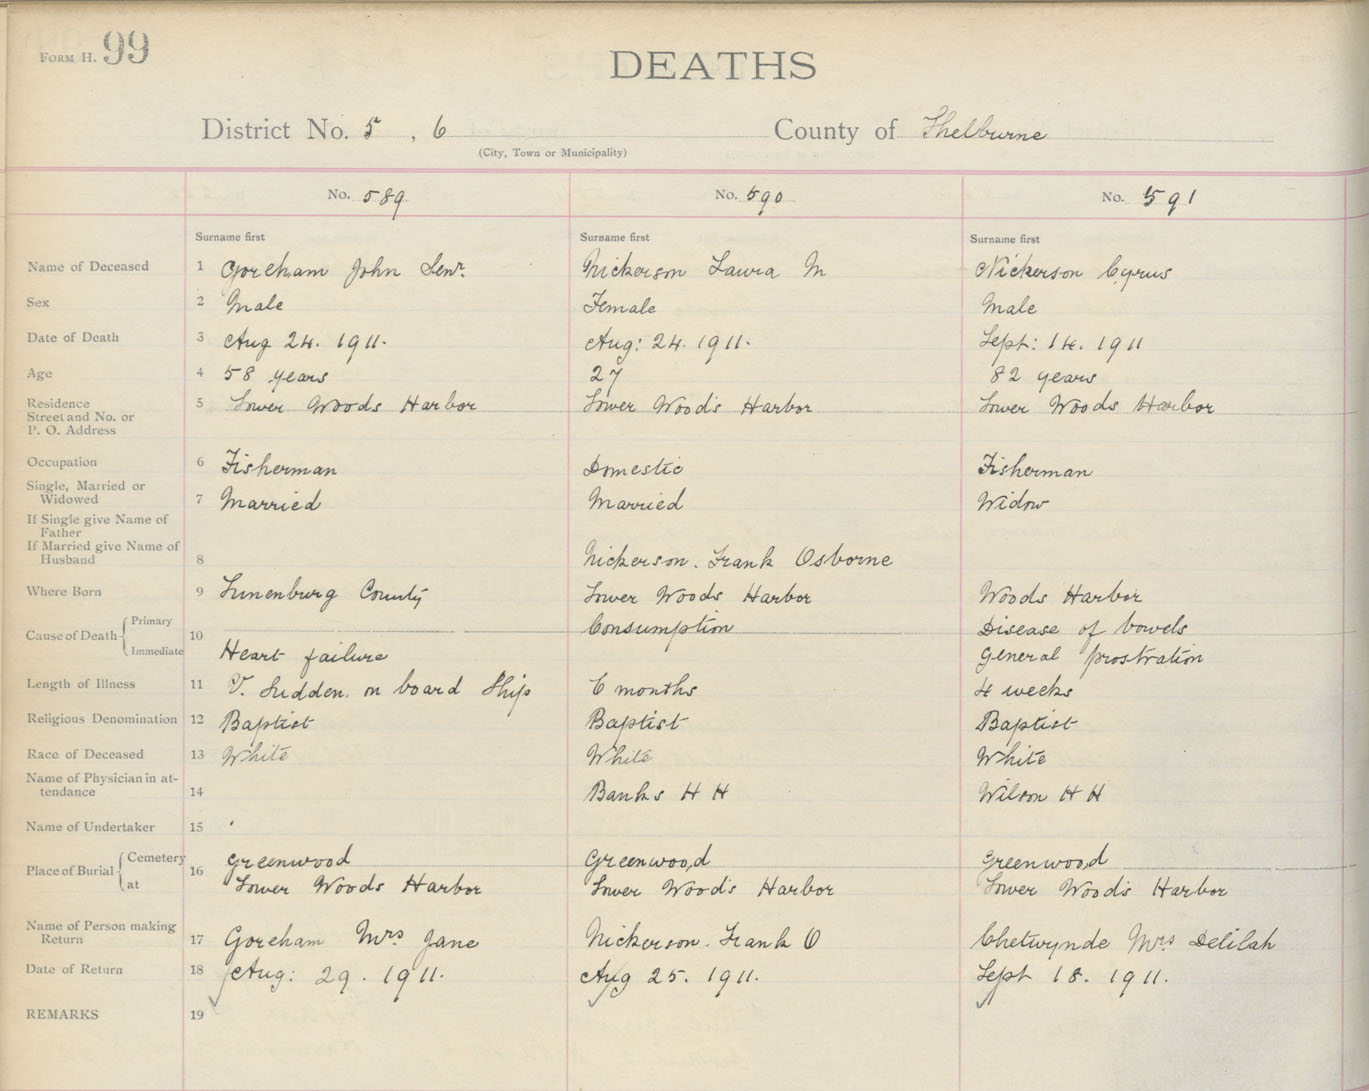 FORM H. 99
DEATHS
District No. 5, 6 County of Shelburne
(City, Town or Municipality)
No. 589 No. 590 No. 591
Surname first Surname first Surname first
Name of Deceased 1 Goreham John Senr. Nickerson Laura M Nickerson Cyrus
Sex 2 Male Female Male
Date of Death 3 Aug 24. 1911. Aug: 24. 1911. Sept: 14. 1911
Age 4 58 years 27 82 years
Residence 5 Lower Woods Harbor Lower Woods Harbor Lower Woods Harbor
Street and No. or
P. O. Address
Occupation 6 Fisherman Domestic Fisherman
Single, Married or
Widowed 7 Married Married Widow
If Single give Name of
Father
If Married give Name of
Husband 8 Nickerson. Frank Osborne
Where Born 9 Lunenburg County Lower Woods Harbor Woods Harbor
Cause of Death 10 Primary Consumption Disease of bowels
Immediate Heart failure General prostration
Length of Illness 11 V. Sudden. on board Ship 6 months 4 weeks
Religious Denomination 12 Baptist Baptist Baptist
Race of Deceased 13 White White White
Name of Physician in at-
tendance 14 Banks H H Wilson H H
Name of Undertaker 15
Place of Burial 16 Cemetery Greenwood Greenwood Greenwood
at Lower Woods Harbor Lower Woods Harbor Lower Woods Harbor
Name of Person making
Return 17 Goreham Mrs Jane Nickerson. Frank O Chetwynde Mrs Delilah
Date of Return 18 Aug: 29. 1911. Aug 25. 1911. Sept 18. 1911.
REMARKS 19